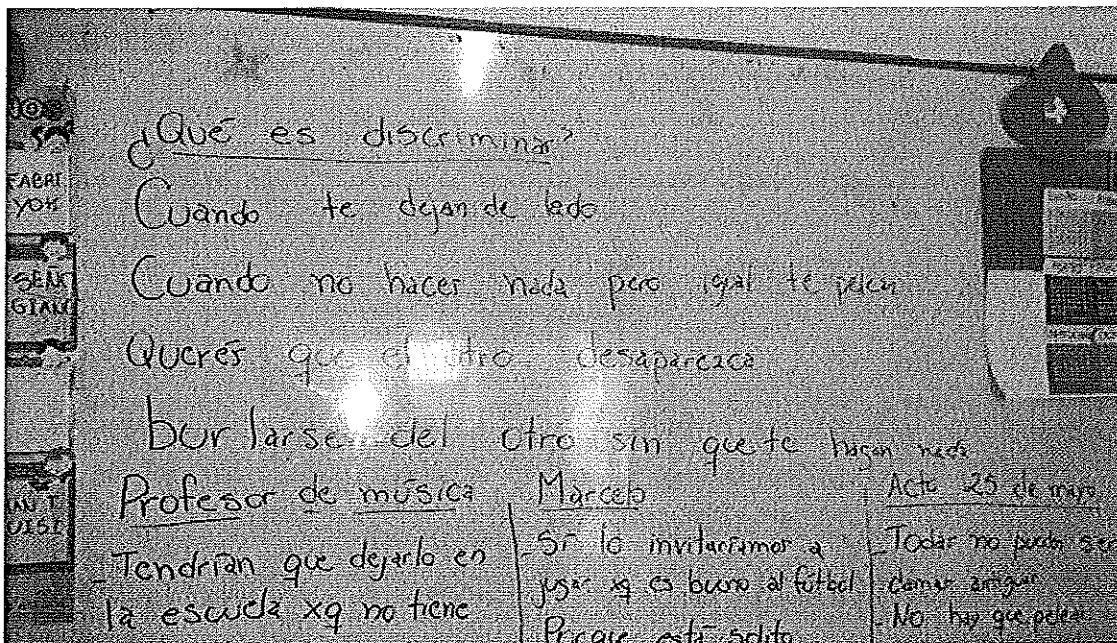 ¿Qué es discriminar?
Cuando te dejan de lado
Cuando no hacer nada pero igual te pelean
Querés que el otro desaparezca
burlarse del otro sin que te hagan nada
Profesor de música
- Tendrían que dejarlo en
la escuela xq no tiene
Marcelo
- Sí lo invitaríamos a
jugar xq es bueno al fútbol
Porque está solito
Acto 25 de mayo
- Todas no pueden ser
damas antiguas
- No hay que pelear
FABRI
YOK
SEÑO
GIAN